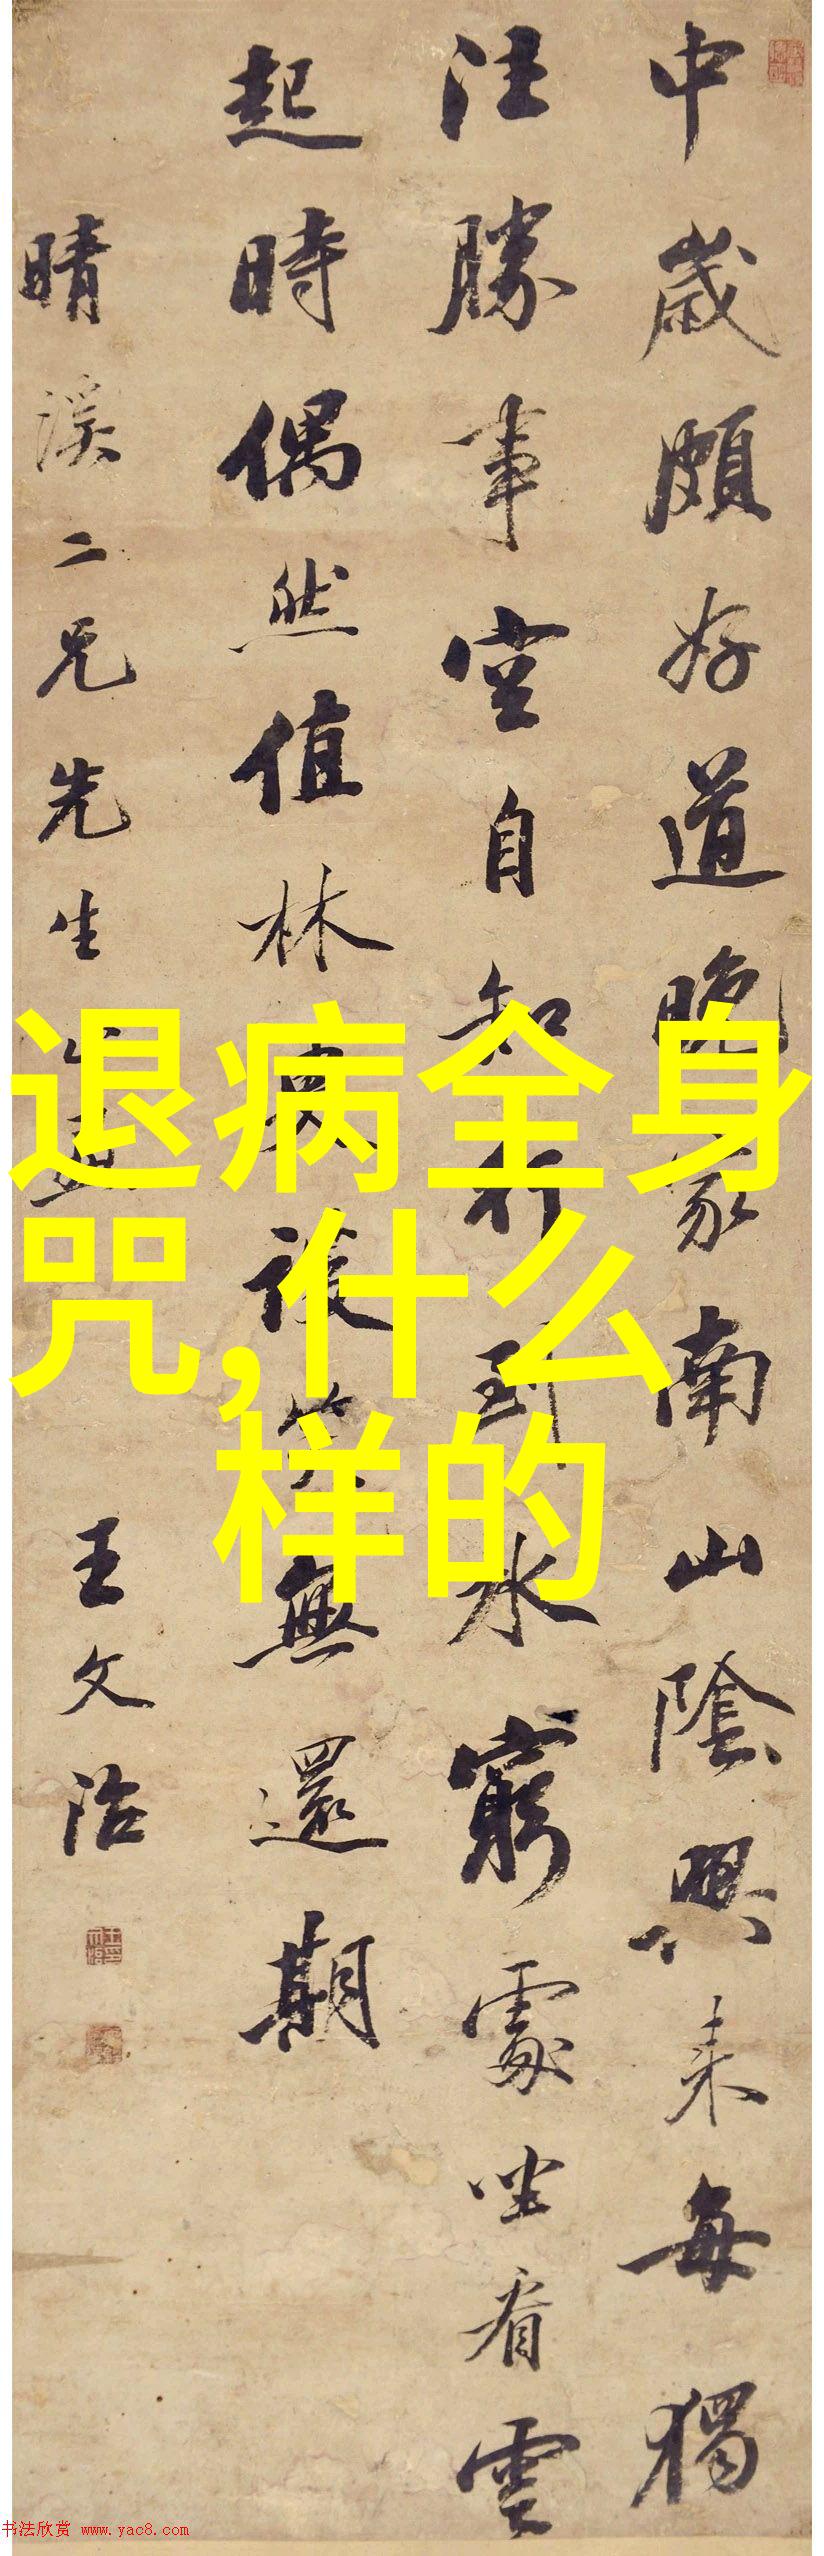 中歲頗好道晚家南山陲興来每獨
往勝事空自知行到水窮處坐看雲
起時偶然值林叟談笑無還期
晴溪二兄先生
王文治
退病全身
咒,什么
样的
书法欣赏 www.yac8.com